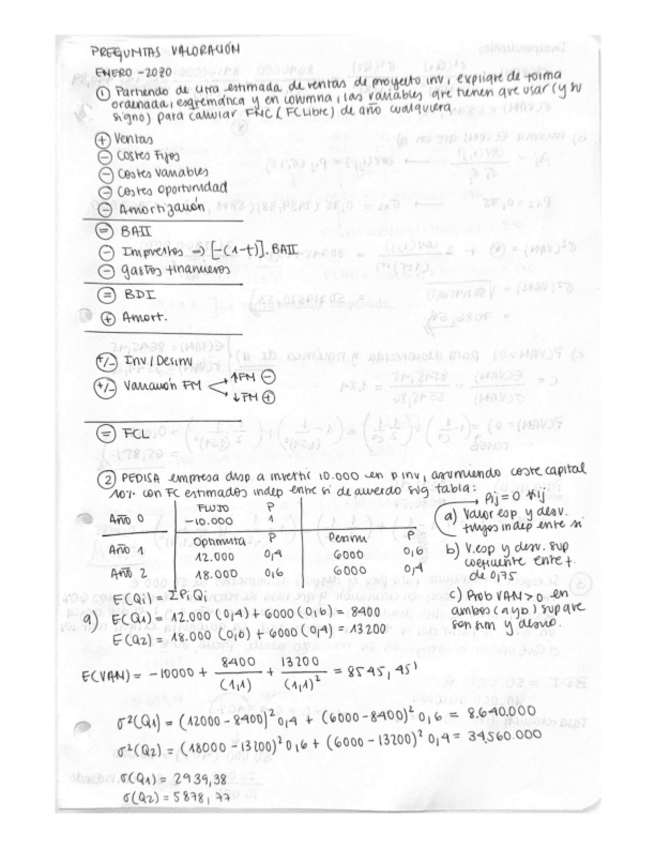 PREGUNTAS VALORACIÓN
ENERO -2020
① Partiendo de cifra estimada de ventas de proyecto inv, explique de forma
ordenada, esquemática y en columna, las variables que tienen que usar (y su
signo) para calcular FNC (FCLibre) de año cualquiera
⊕ Ventas
⊖ Costes Fijos
⊖ Costes variables
⊖ Costes oportunidad
⊖ Amortización
⊜ BAII
⊖ Impuestos ⇒ [-(1-t)]. BAII
⊖ gastos financieros
⊜ BDI
⊕ Amort.
+/- Inv/Desinv
+/- Variación FM ↑FM ⊖
↓FM ⊕
⊜ FCL
② PEDISA empresa disp a invertir 10.000 en p inv, asumiendo coste capital
10% con FC estimados indep entre si de acuerdo sig tabla:
FLUJO P
Año 0 -10.000 1
Optimista P Pesim P
Año 1 12.000 0,4 6000 0,6
Año 2 18.000 0,6 6000 0,4
ρij=0 *ij
a) Valor esp y desv. flujos indep entre si
b) V.esp y desv. sup coeficiente entre f. de 0,75
c) Prob VAN>0 en ambos (a y b) sup que son fim y distrib.
E(Qi) = ΣPi Qi
a) E(Q1) = 12.000 (0,4) + 6000 (0,6) = 8400
E(Q2) = 18.000 (0,6) + 6000 (0,4) = 13200
E(VAN) = -10000 + 8400/(1,1) + 13200/(1,1)² = 8545,45
σ²(Q1) = (12000-8400)² 0,4 + (6000-8400)² 0,6 = 8.640.000
σ²(Q2) = (18000-13200)² 0,6 + (6000-13200)² 0,4 = 34.560.000
σ(Q1) = 2939,38
σ(Q2) = 5878,77